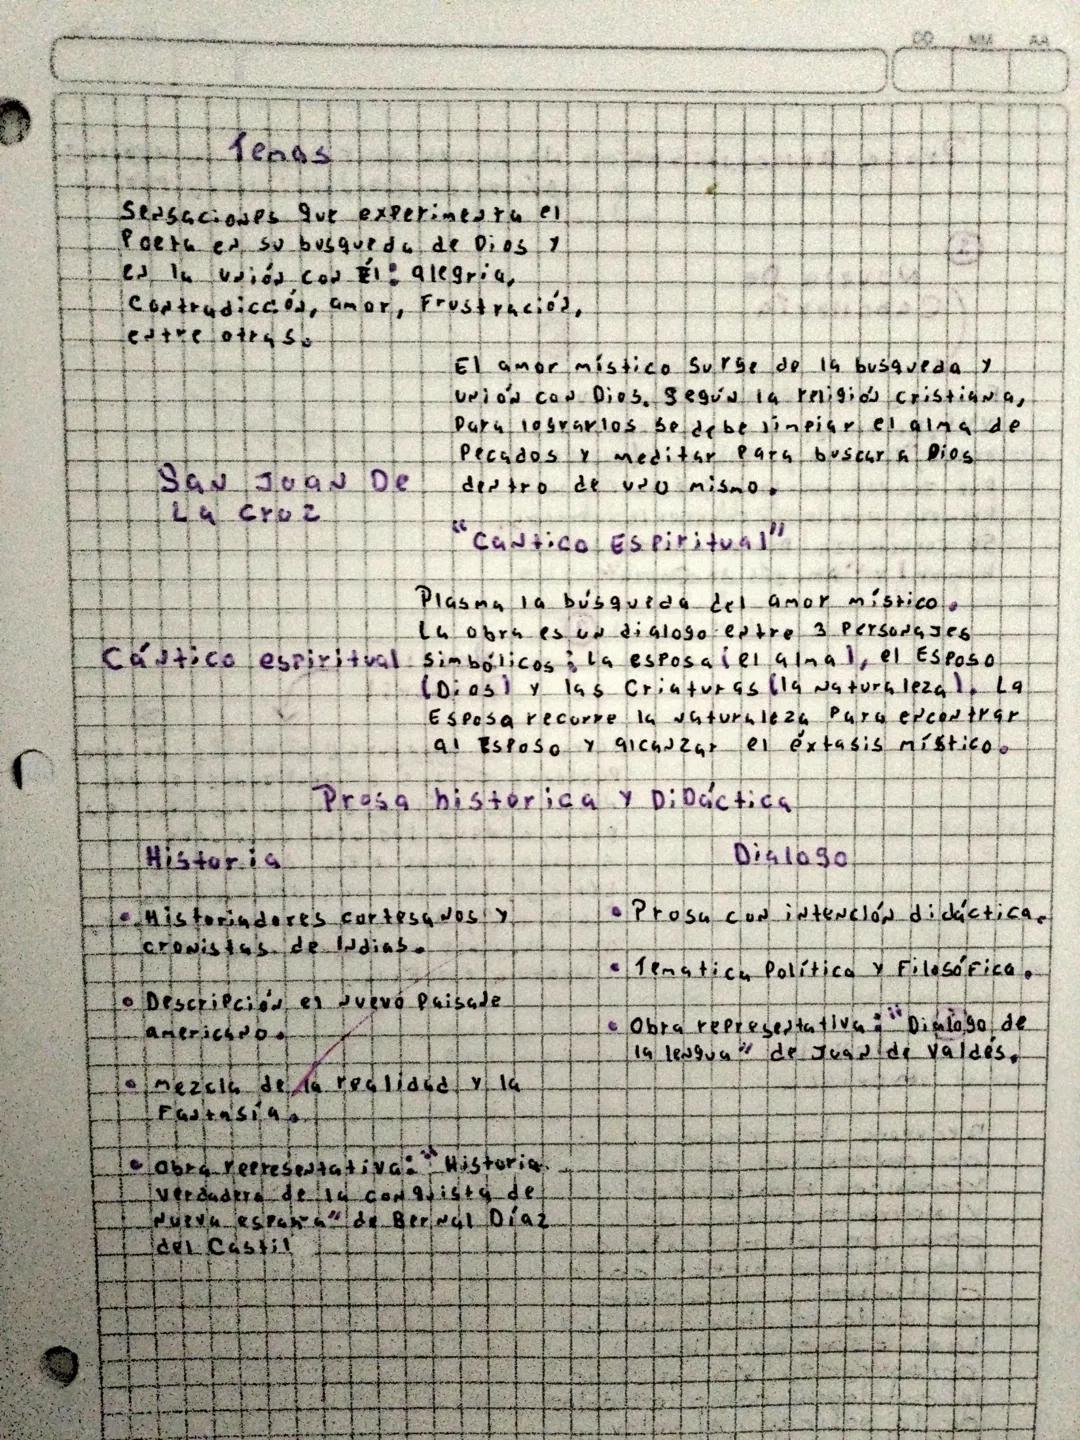 DD MM AA
Temas
Sensaciones que experimenta el
Poeta en su busqueda de Dios y
en la unión con Él: alegria,
Contradicción, amor, Frustración,
entre otras.
El amor místico surge de la busqueda y
unión con Dios. Según la religión cristiana,
Para lograrlos se debe limpiar el alma de
Pecados y meditar Para buscar a Dios
dentro de uno mismo.
San Juan De
La Cruz
"Cantico Espiritual"
Plasma la búsqueda del amor místico.
La obra es un dialogo entre 3 Personajes
Cántico espiritual simbólicos: La esposa (el alma), el Esposo
(Dios) y las Criaturas (la naturaleza). La
Esposa recorre la naturaleza Para encontrar
al Esposo y alcanzar el éxtasis místico.
Prosa historica y DiDáctica
Historia
Dialogo
• Historiadores cortesanos y
cronistas de Indias.
• Descripción el nuevo Paisaje
americano.
• mezcla de la realidad y la
Fantasía.
• Obra representativa: "Historia
verdadera de la conquista de
Nueva españa" de Bernal Díaz
del Castil
• Prosa con intención didáctica.
• Tematica Política y Filosófica.
• Obra representativa: "Dialogo de
la lengua" de Juan de Valdés.